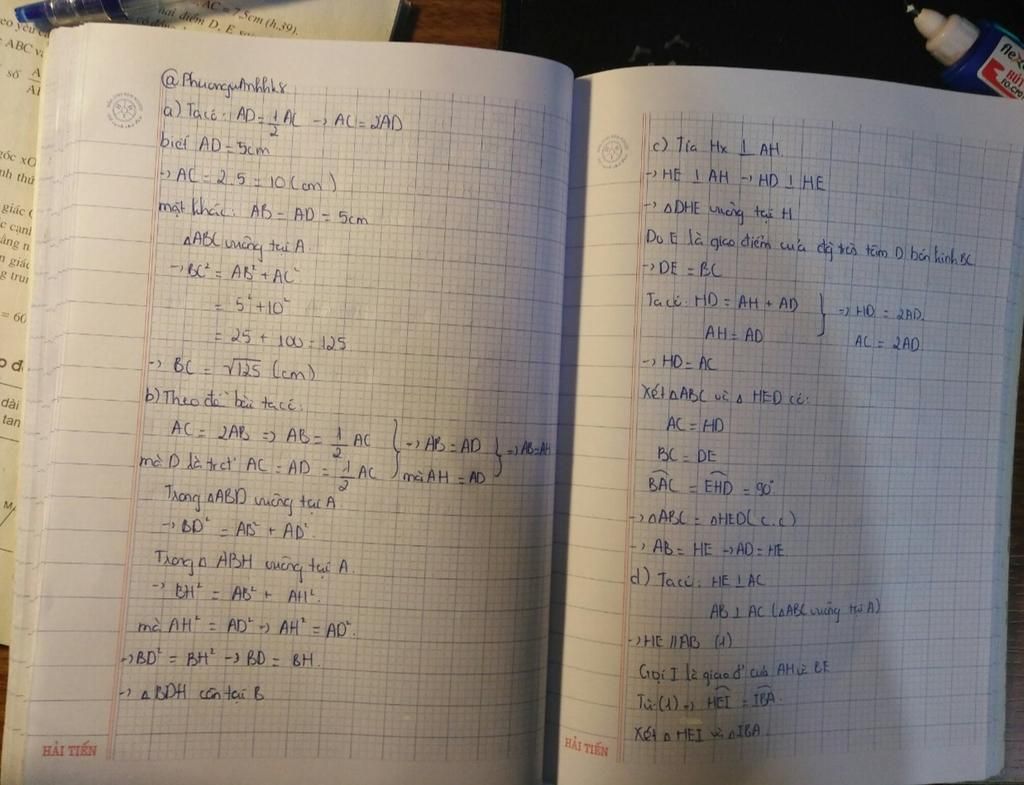 AC = 7,5cm (h.39).
hai điểm D, E
ABC và
số
góc xO
nh thứ
giác
c cạnh
g trun
= 60
dài
tan
@PhuonguAnhhk8
a) Ta có: AD = 1/2 AC → AC = 2AD
biết AD = 5cm
→ AC = 2.5 = 10 (cm)
mặt khác: AB = AD = 5cm
△ABC vuông tại A
→ BC² = AB² + AC²
= 5² + 10²
= 25 + 100 = 125
→ BC = √125 (cm)
b) Theo đề bài ta có:
AC = 2AB => AB = 1/2 AC } → AB = AD } => AB = AH
mà D là trđ' AC = AD = 1/2 AC } mà AH = AD
Trong △ABD vuông tại A
→ BD² = AB² + AD²
Trong △ ABH vuông tại A.
→ BH² = AB² + AH².
mà AH² = AD² → AH² = AD².
→ BD² = BH² → BD = BH.
→ △BDH cân tại B
HẢI TIẾN
c) Tia Hx ⊥ AH.
→ HE ⊥ AH → HD ⊥ HE
→ △DHE vuông tại H
Do E là giao điểm của đg tròn tâm D bán kính BC
→ DE = BC
Ta có: HD = AH + AD } => HD = 2AD.
AH = AD } AC = 2AD
→ HD = AC
Xét △ABC và △ HED có:
AC = HD
BC = DE
BAC = EHD = 90°
→ △ABC = △HED (c.c)
→ AB = HE → AD = HE
d) Ta có: HE ⊥ AC
AB ⊥ AC (△ABC vuông tại A)
→ HE // AB (1)
Gọi I là giao đ' của AH và BE
Từ (1) => HEI = IBA.
Xét △ HEI và △IBA
HẢI TIẾN
flex
BÚT